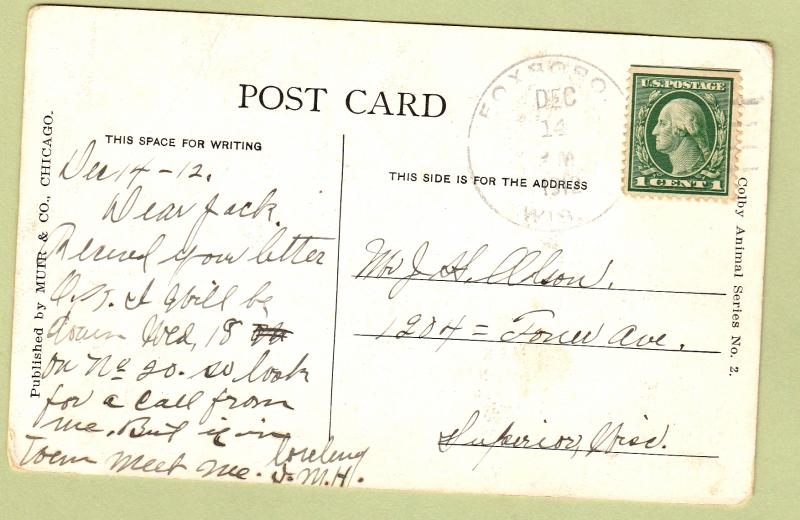 POST CARD
THIS SPACE FOR WRITING
THIS SIDE IS FOR THE ADDRESS
Published by MUIR & CO., CHICAGO.
Colby Animal Series No. 2.
FOXBORO
DEC
14
M
1912
WIS.
U.S. POSTAGE
1 CENT 1
Dec 14-12.
Dear Jack
Received your letter
O.K. I will be
down Wed, 18
on No 20. so look
for a call from
me. But if in
Town meet me.
J.M.H.
Mr J. H. Olson.
1204 = Tower Ave.
Superior, Wisc.